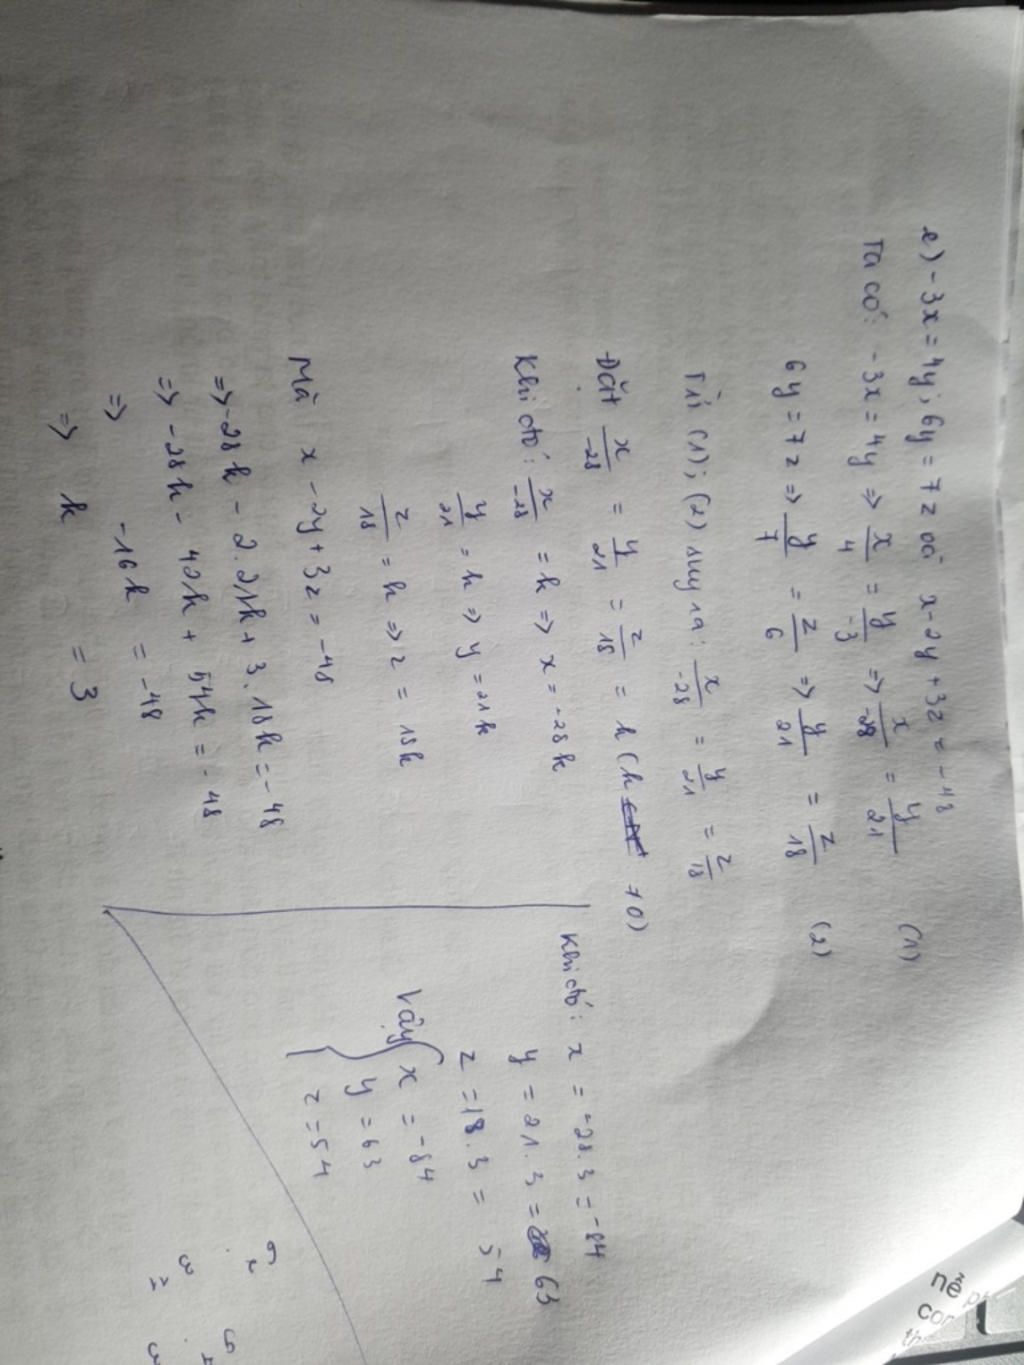 e) -3x = 4y ; 6y = 7z và x - 2y + 3z = -48
Ta có: -3x = 4y => x/4 = y/-3 => x/-28 = y/21 (1)
6y = 7z => y/7 = z/6 => y/21 = z/18 (2)
Từ (1); (2) suy ra: x/-28 = y/21 = z/18
Đặt x/-28 = y/21 = z/18 = k (k ≠ 0)
Khi đó: x/-28 = k => x = -28k
y/21 = k => y = 21k
z/18 = k => z = 18k
Mà x - 2y + 3z = -48
=> -28k - 2.21k + 3.18k = -48
=> -28k - 42k + 54k = -48
=> -16k = -48
=> k = 3
Khi đó: x = -28.3 = -84
y = 21.3 = 63
z = 18.3 = 54
Vậy { x = -84
y = 63
z = 54
nể
con